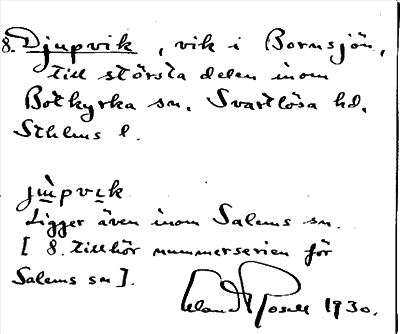 8. Djupvik, vik i Bornsjön,
till största delen inom
Botkyrka sn. Svartlösa hd.
Sthlms l.
jùpvik
Ligger även inom Salems sn.
[ 8. tillhör nummerserien för
Salems sn ].
1930.